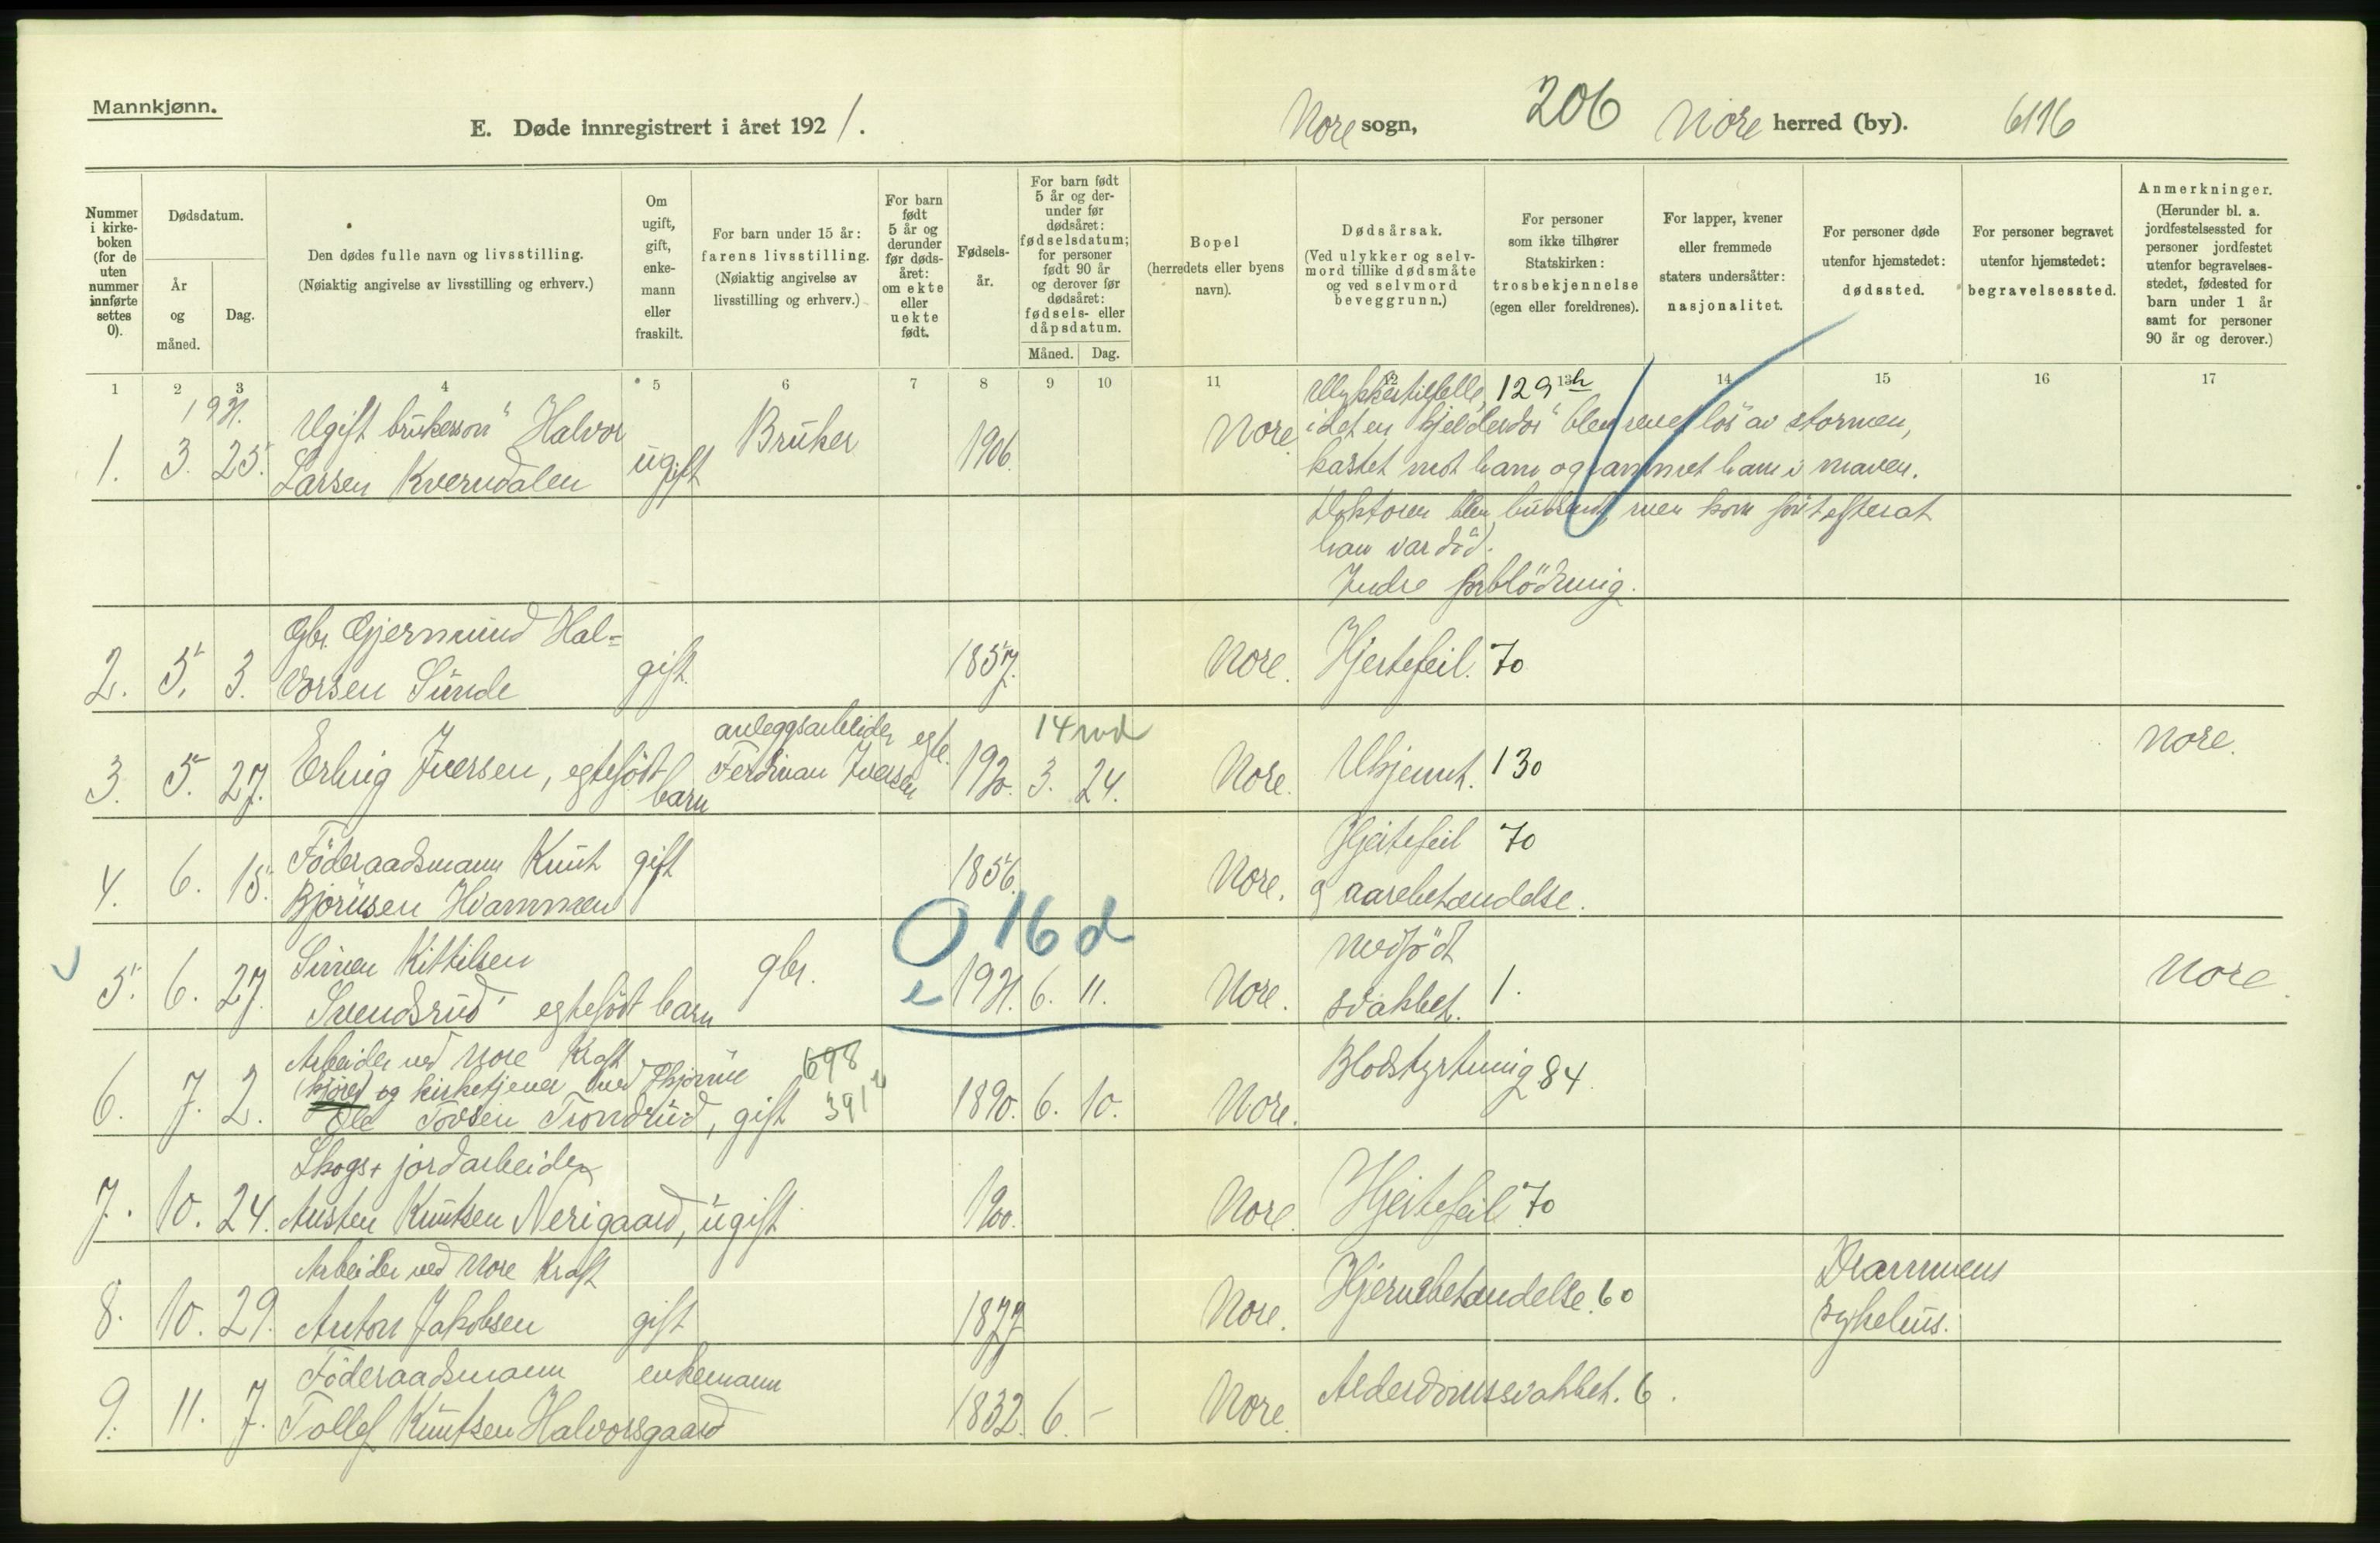 Mannkjønn.
E. Døde innregistrert i året 1921.
Nore sogn, 206 Nore herred (by). 6116
Nummer i kirkeboken (for de uten nummer innførte settes 0).
Dødsdatum.
År og måned.
Dag.
Den dødes fulle navn og livsstilling.
(Nøiaktig angivelse av livsstilling og erhverv.)
Om ugift, gift, enkemann eller fraskilt.
For barn under 15 år: farens livsstilling.
(Nøiaktig angivelse av livsstilling og erhverv.)
For barn født 5 år og derunder før dødsåret: om ekte eller uekte født.
Fødselsår.
For barn født 5 år og derunder før dødsåret: fødselsdatum; for personer født 90 år og derover før dødsåret: fødsels- eller dåpsdatum.
Måned. Dag.
Bopel
(herredets eller byens navn).
Dødsårsak.
(Ved ulykker og selvmord tillike dødsmåte og ved selvmord beveggrunn.)
For personer som ikke tilhører Statskirken: trosbekjennelse (egen eller foreldrenes).
For lapper, kvener eller fremmede staters undersåtter: nasjonalitet.
For personer døde utenfor hjemstedet: dødssted.
For personer begravet utenfor hjemstedet: begravelsessted.
Anmerkninger.
(Herunder bl. a. jordfestelsessted for personer jordfestet utenfor begravelsesstedet, fødested for barn under 1 år samt for personer 90 år og derover.)
1 2 3 4 5 6 7 8 9 10 11 12 13 14 15 16 17
1921.
1. 3. 25. Ugift brukersön Halvor
Larsen Kverndalen ugift Bruker 1906. Nore.
Ulykkestilfelle, 129 h
idet en fjeldörsdör blev revet lös av stormen,
kastet mot ham og rammet ham i maven.
Doktoren blev budsendt, men kom först efterat
han var död.
Indre forblödning.
2. 5. 3. Gbr. Gjermund Hal=
vorsen Sunde gift. 1857. Nore. Hjertefeil. 70
3. 5. 27. Erling Iversen, egtefödt barn anleggsarbeider Ferdinan Iversen egte. 1920. 3. 24. 14 md Nore. Ukjennt. 130 Nore.
4. 6. 15. Föderaadsmann Knut
Björnsen Hvammen gift 1856. Nore. Hjertefeil 70
og aarebetendelse.
5. 6. 27. Simen Kittilsen
Svendsrud egtefödt barn gbr. e 0 16 d 1921. 6. 11. Nore. Medfödt
svakhet. 1. Nore.
6. 7. 2. Arbeider ved Nore Kraft
(kjörer) og kirketjener ved
Ole Tovsen Trondrud, gift 698 391 1890. 6. 10. Nore. Blodstyrtning 284.
7. 10. 24. Skogs + jordarbeider
Austen Knutsen Nerigaard, ugift 1900. Nore. Hjertefeil 70
8. 10. 29. Arbeider ved Nore Kraft
Anton Jakobsen gift 1877 Nore. Hjernebetendelse. 60 Drammens
sykehus.
9. 11. 7. Föderaadsmann enkemann
Tollef Knutsen Halvorsgaard 1832. 6. - Nore. Alderdomssvakhet. 6.